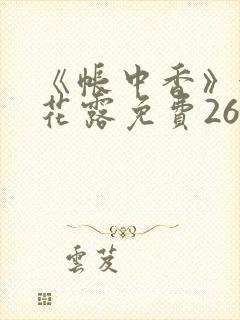 《帳中香》
花露免費26
雲芨